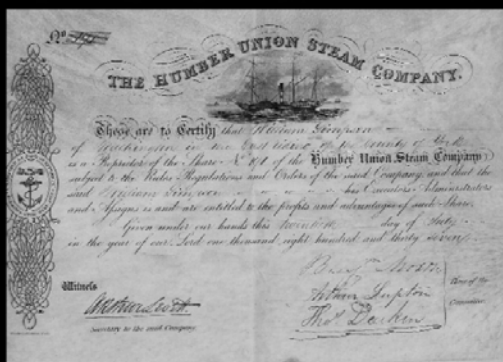 No.
THE HUMBER UNION STEAM COMPANY.
These are to Certify that William Simpson
of in the East Riding of the County of York
is a Proprietor of the Share No. 191 of the Humber Union Steam Company
subject to the Rules Regulations and Orders of the said Company, and that the
said William Simpson his Executors Administrators
and Assigns is and are entitled to the profits and advantages of such Share.
Given under our hands this day of July
in the year of our Lord one thousand eight hundred and thirty seven
Witness
Arthur Scott
Secretary to the said Company.
Arthur Lupton
Thos
of the
Committee.